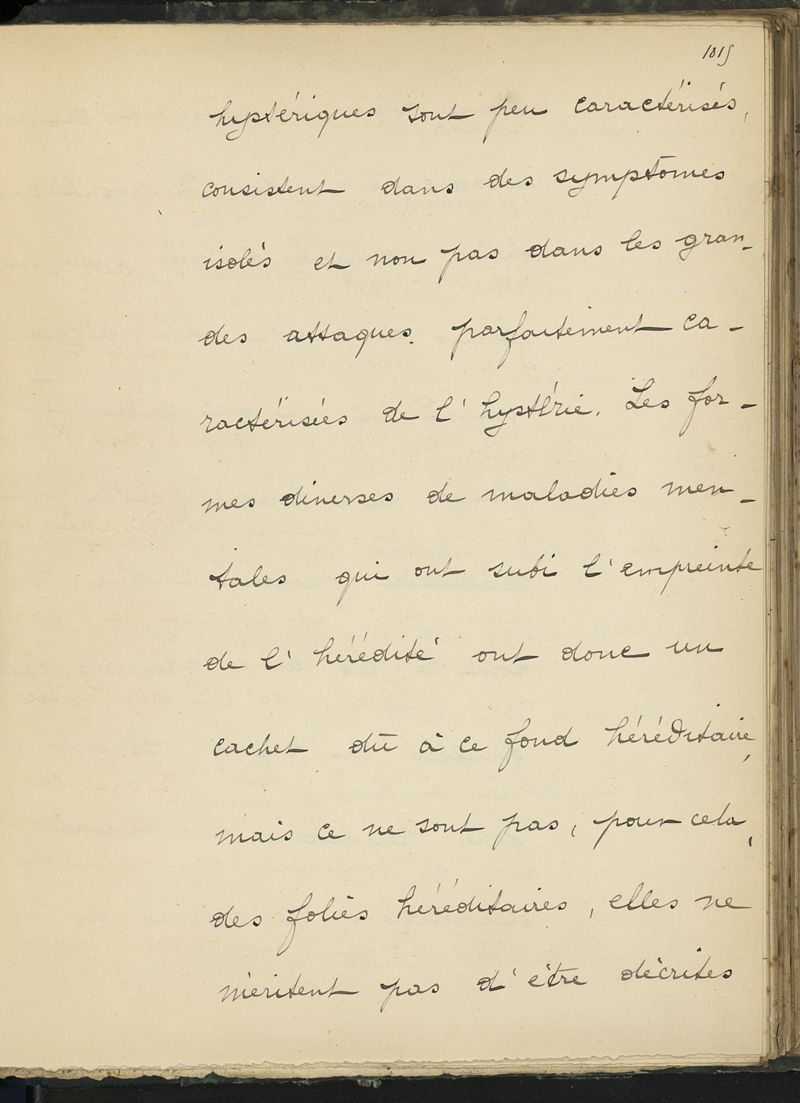 1015
hystériques sont peu caractérisés,
consistent dans des symptômes
isolés et non pas dans les gran-
des attaques parfaitement ca-
ractérisées de l'hystérie. Les for-
mes diverses de maladies men-
tales qui ont subi l'empreinte
de l'hérédité ont donc un
cachet dû à ce fond héréditaire,
mais ce ne sont pas, pour cela,
des folies héréditaires, elles ne
méritent pas d'être décrites